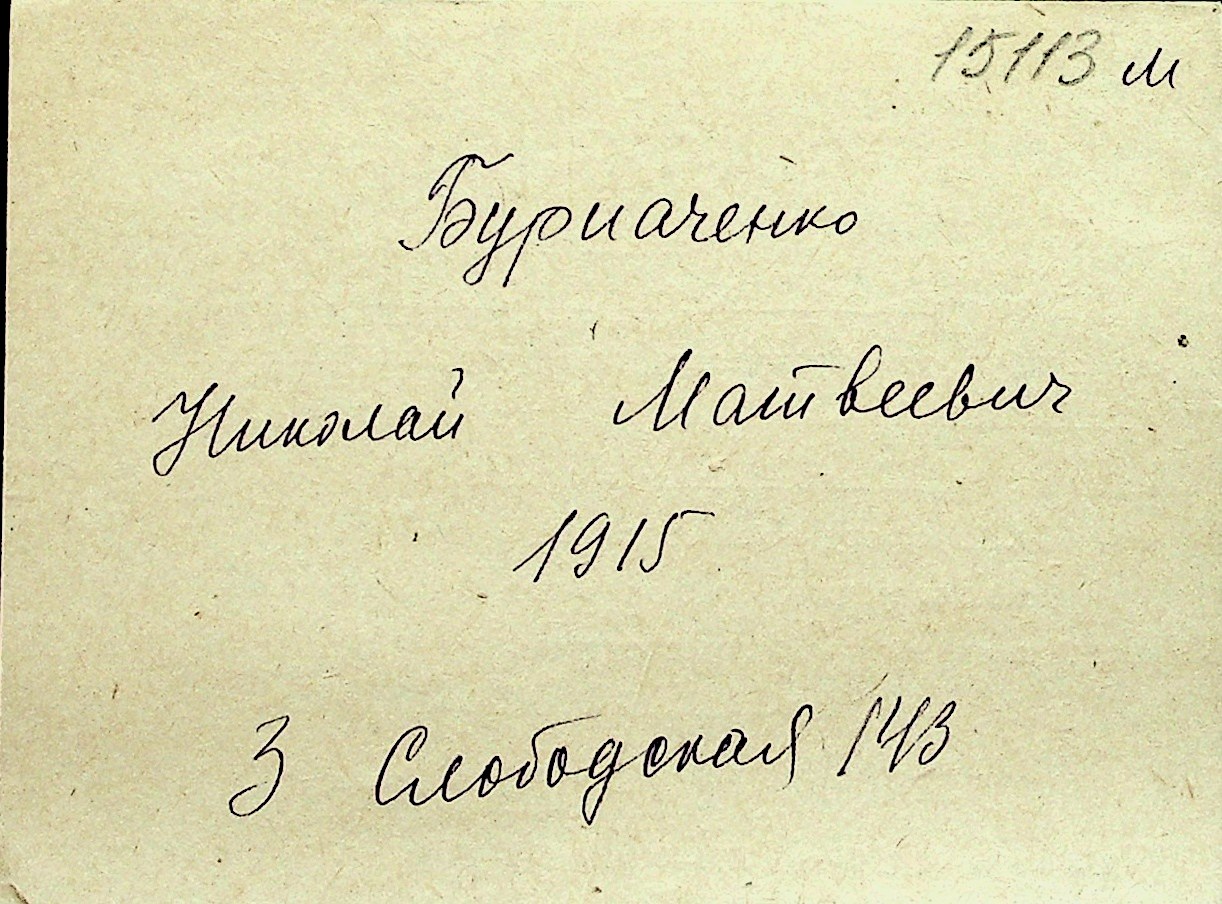 15113 м
Бурначенко
Николай Матвеевич
1915
3 Слободская 143